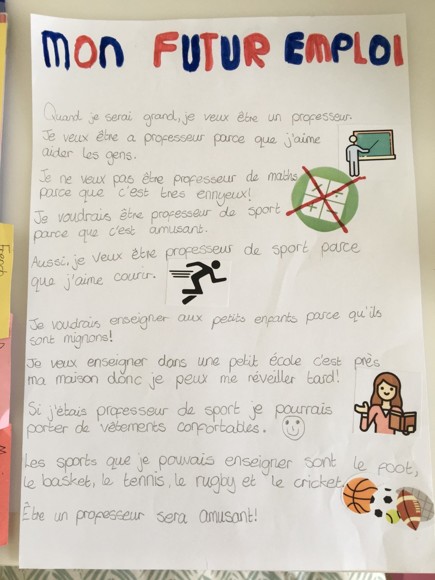 MON FUTUR EMPLOI
Quand je serai grand, je veux être un professeur.
Je veux être a professeur parce que j'aime
aider les gens.
Je ne veux pas être professeur de maths
parce que c'est tres ennyeux!
Je voudrais être professeur de sport
parce que c'est amusant.
Aussi, je veux être professeur de sport parce
que j'aime courir.
Je voudrais enseigner aux petits enfants parce qu'ils
sont mignons!
Je veux enseigner dans une petit école c'est près
ma maison donc je peux me réveiller tard!
Si j'étais professeur de sport je pourrais
porter de vêtements confortables.
Les sports que je pouvais enseigner sont le foot,
le basket, le tennis, le rugby et le cricket.
Être un professeur sera amusant!
French